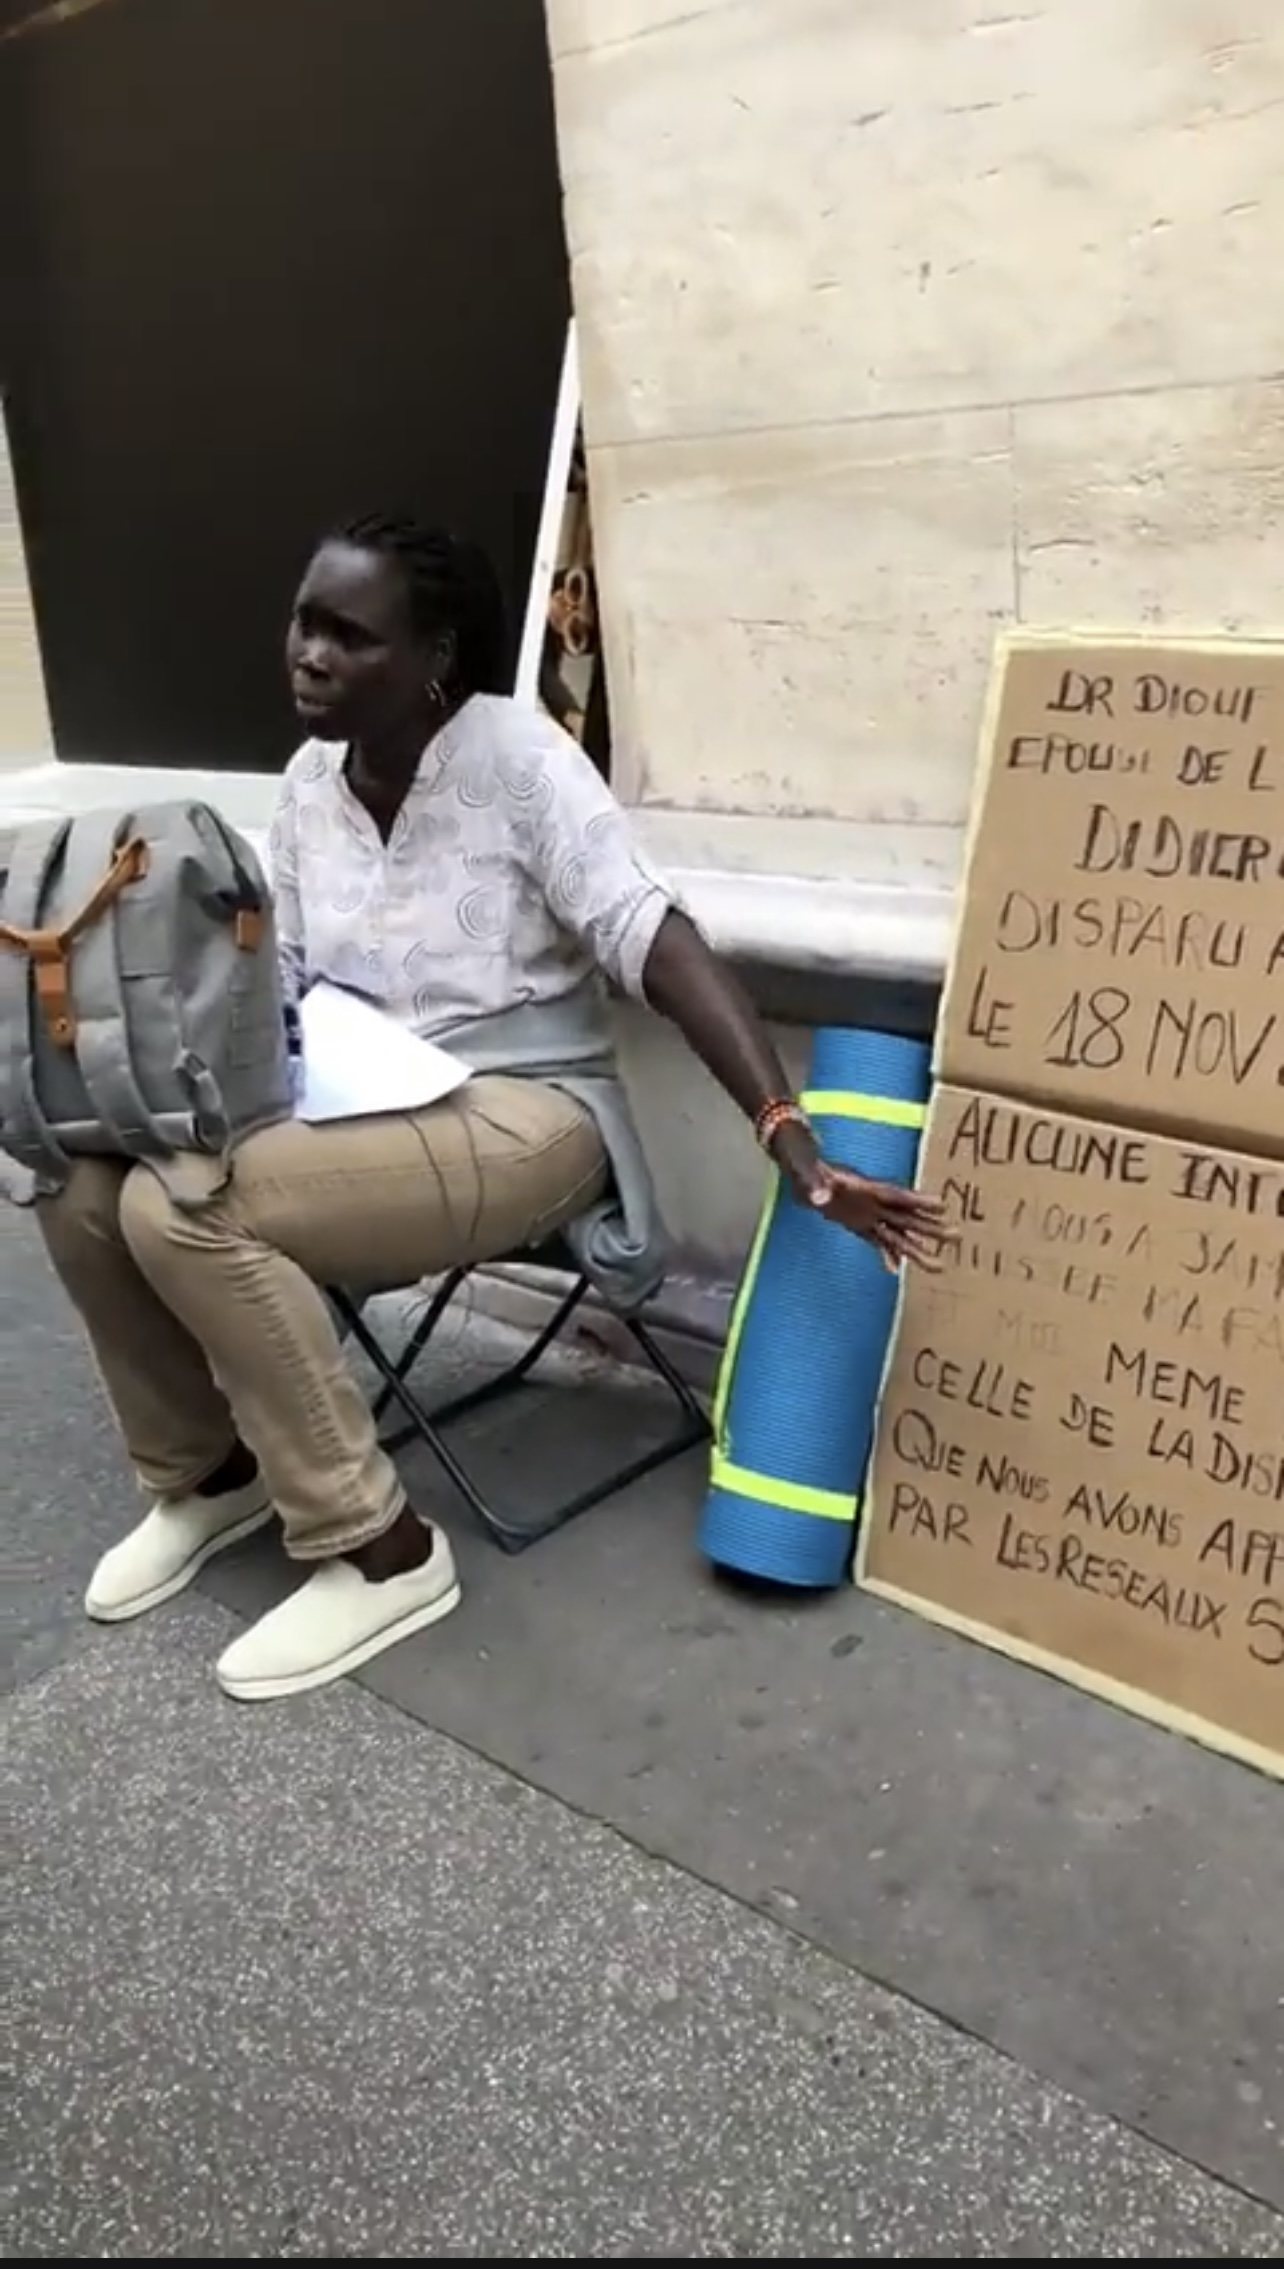 DR DIOUF
EPOUSE DE L
DIDIER
DISPARU A
LE 18 NOV
AUCUNE INTE
NOUS A JAM
MA FA
MEME
CELLE DE LA DISP
QUE NOUS AVONS APP
PAR LES RESEAUX S